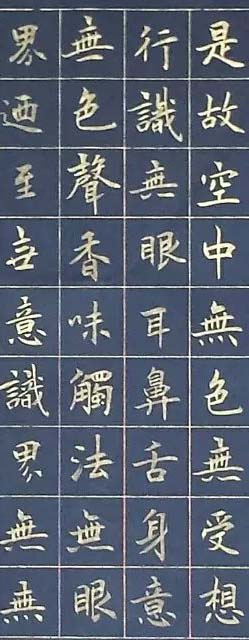 是故空中無色無受想
行識無眼耳鼻舌身意
無色聲香味觸法無眼
界迺至無意識界無無